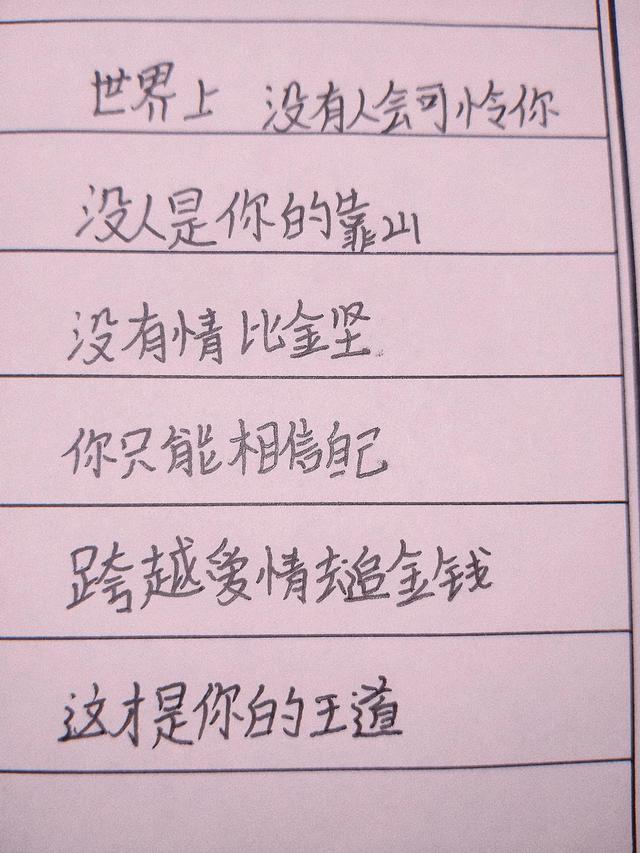 世界上 没有人会可怜你
没人是你的靠山
没有情比金坚
你只能相信自己
跨越爱情去追金钱
这才是你的王道